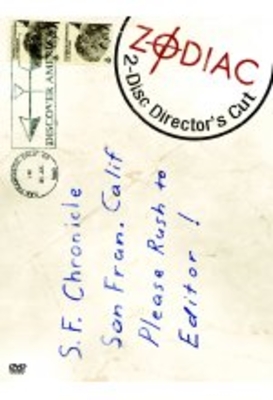 ZODIAC
2-Disc Director's Cut
DISCOVER AMERICA
S.F. Chronicle
San Fran. Calif
Please Rush to
Editor !
DVD